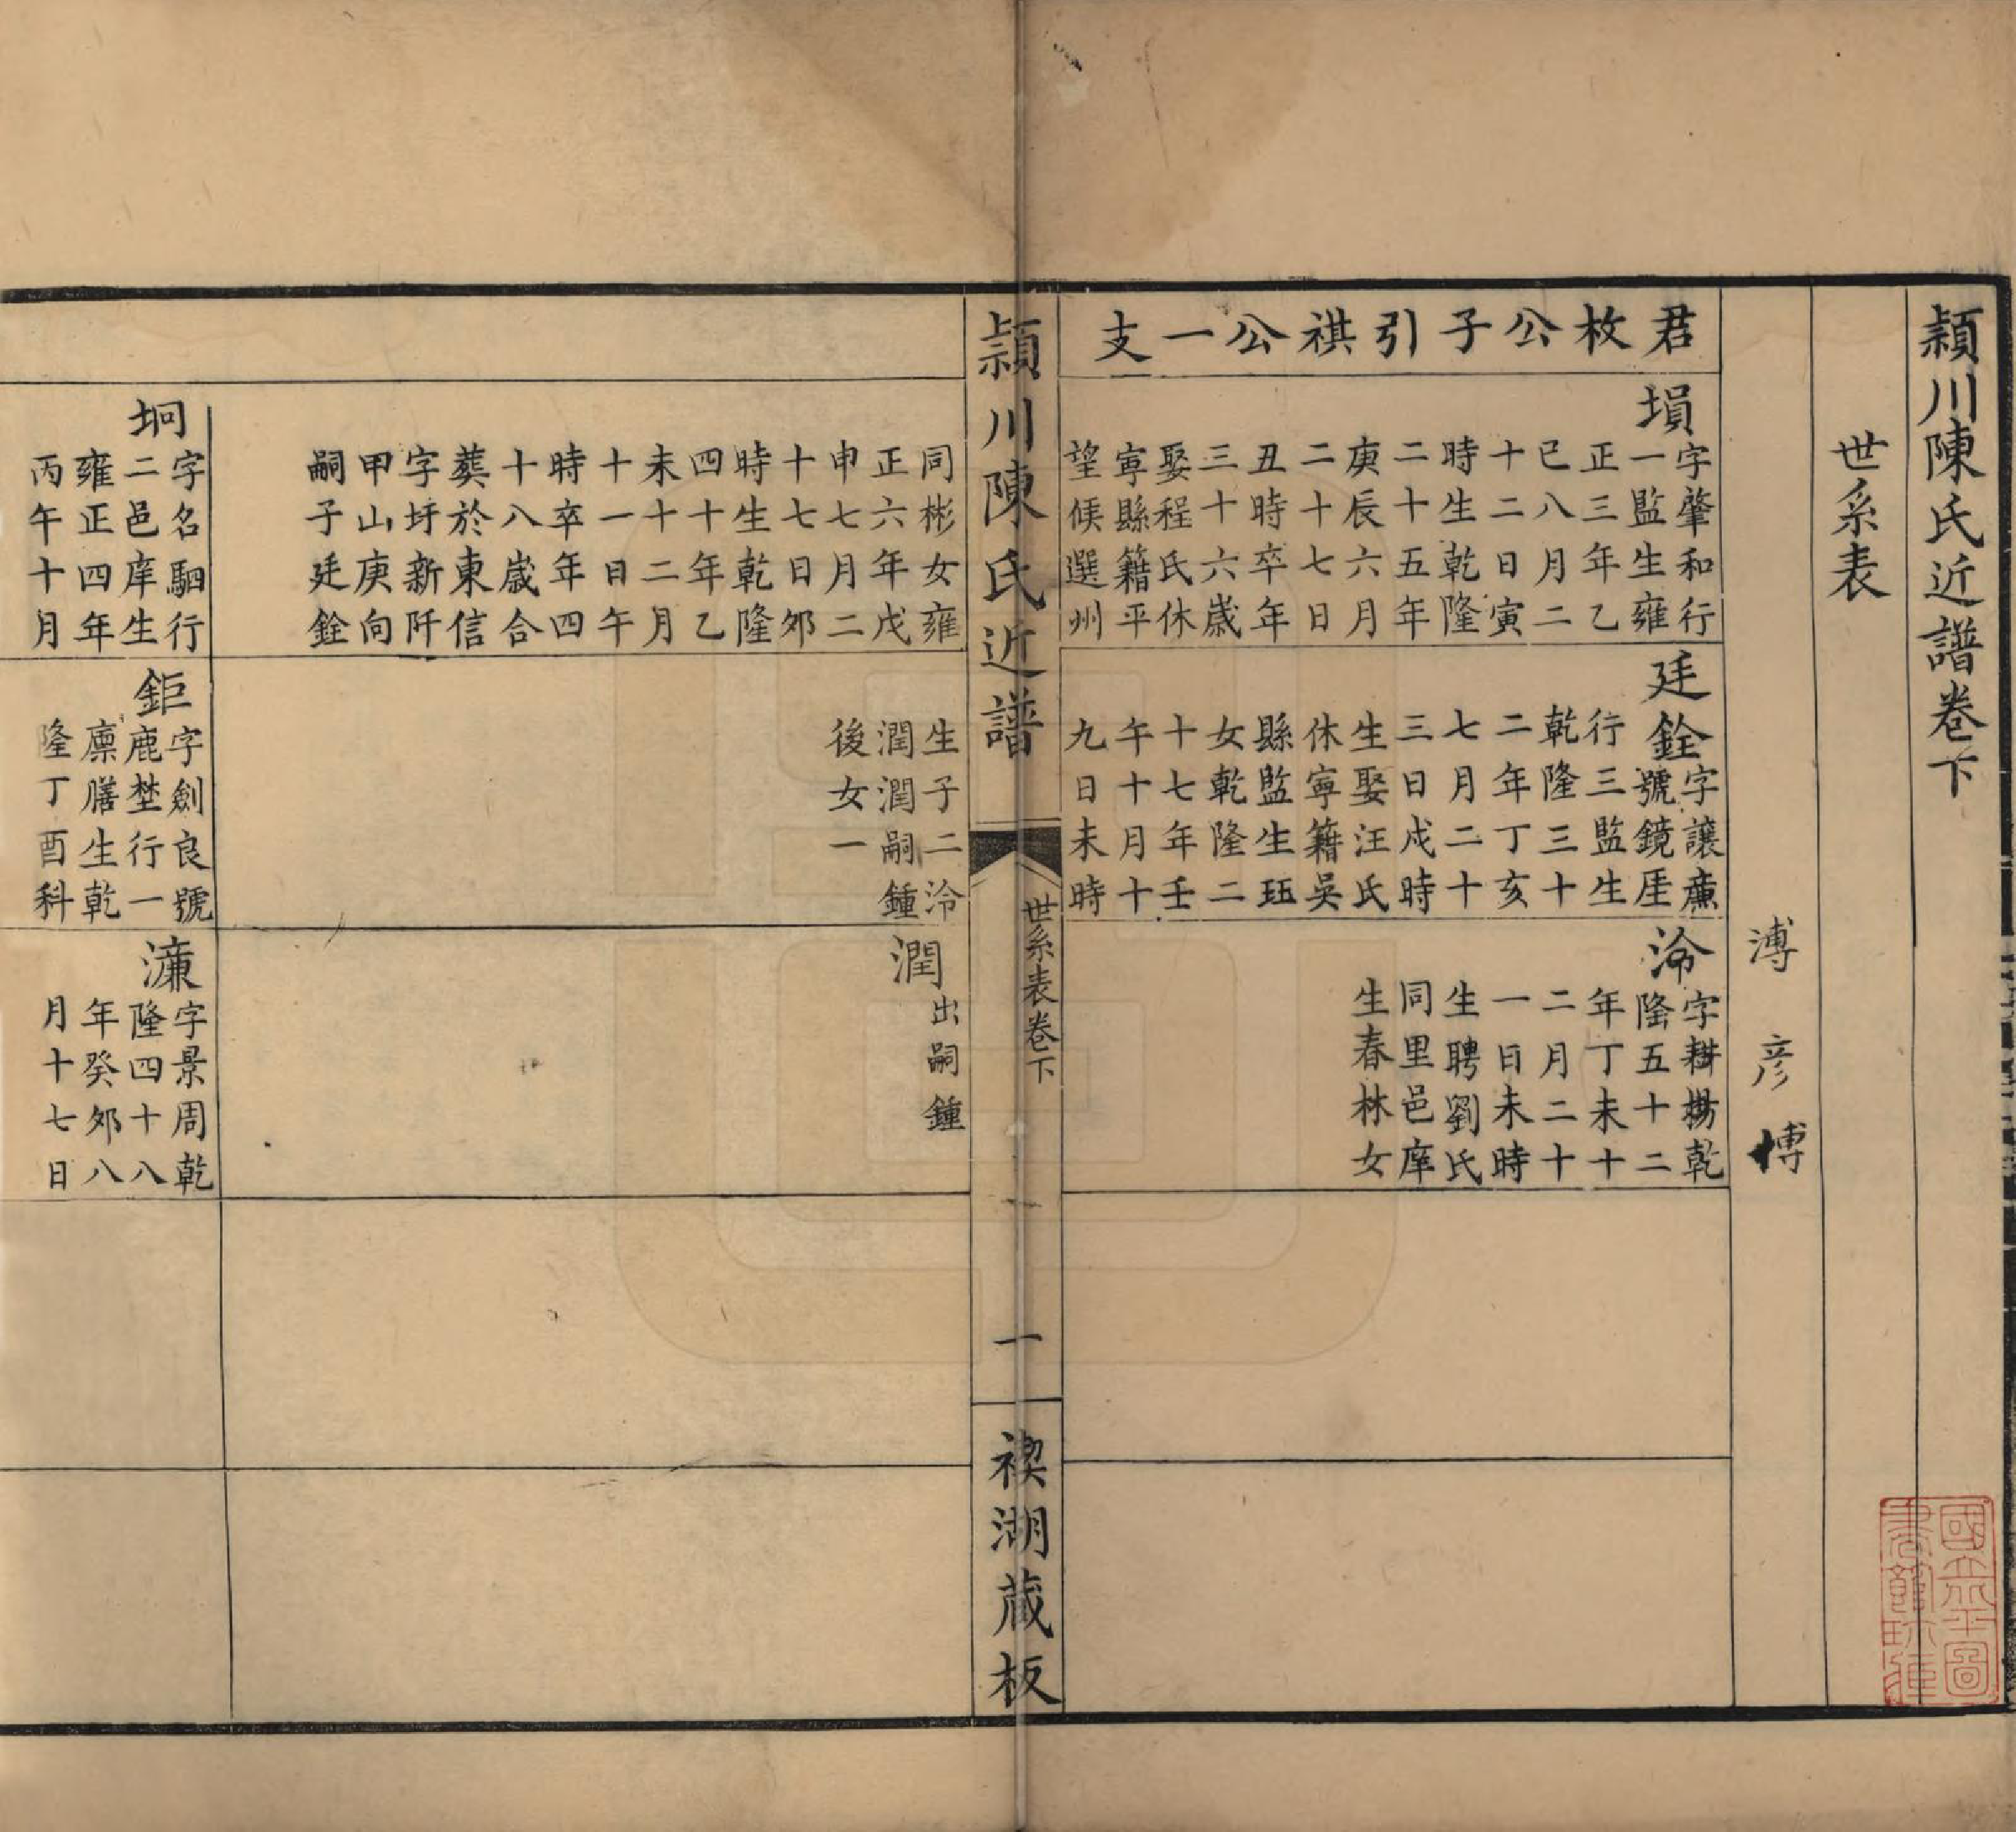 穎川陳氏近譜卷下
世系表
溥彥博
君枚公子引祺公一支
塤
字肇和行
一監生雍
正三年乙
巳八月二
十二日寅
時生乾隆
二十五年
庚辰六月
二十七日
丑時卒年
三十六歲
娶程氏休
寧縣籍平
望候選州
廷銓
字讓薰
號鏡厓
行三監生
乾隆三十
二年丁亥
七月二十
三日戌時
生娶汪氏
休寧籍吳
縣監生珏
女乾隆二
十七年壬
午十月十
九日未時
泠
字耕揚乾
隆五十二
年丁未十
二月二十
一日未時
生聘劉氏
同里邑庠
生春林女
穎川陳氏近譜
世系表卷下
一
禊湖藏板
同彬女雍
正六年戊
申七月二
十七日夘
時生乾隆
四十年乙
未十二月
十一日午
時卒年四
十八歲合
葬於東信
字圩新阡
甲山庚向
嗣子廷銓
生子二泠
潤潤嗣鍾
後女一
潤
出嗣鍾
坰
字名駟行
二邑庠生
雍正四年
丙午十月
鉅
字劍良號
鹿埜行一
廩膳生乾
隆丁酉科
濂
字景周乾
隆四十八
年癸夘八
月十七日
國立北平圖
書館珍藏